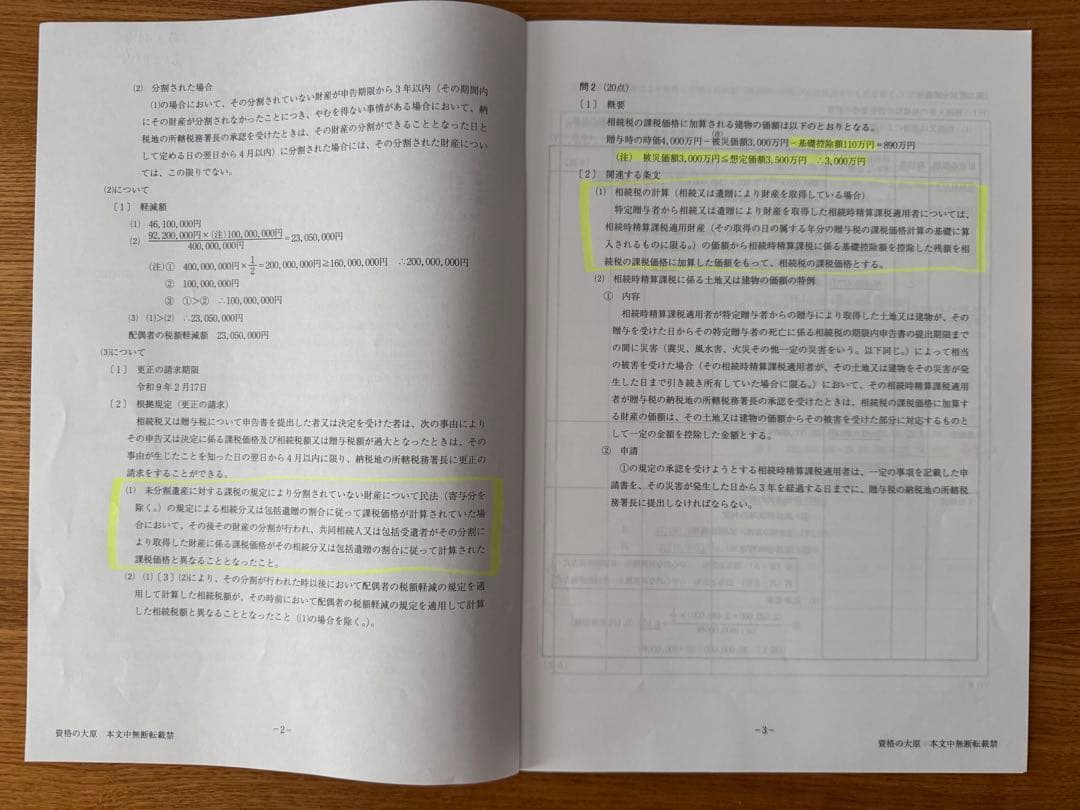 (2) 分割された場合
(1)の場合において、その分割されていない財産が申告期限から3年以内（その期間内
にその財産が分割されなかったことにつき、やむを得ない事情がある場合において、納
税地の所轄税務署長の承認を受けたときは、その財産の分割ができることとなった日と
して定める日の翌日から4月以内）に分割された場合には、その分割された財産につい
ては、この限りでない。
(2)について
〔1〕 軽減額
(1) 46,100,000円
(2) 92,200,000円×(注)100,000,000円/400,000,000円=23,050,000円
(注)① 400,000,000円×1/2=200,000,000円≧160,000,000円 ∴200,000,000円
② 100,000,000円
③ ①>② ∴100,000,000円
(3) (1)>(2) ∴23,050,000円
配偶者の税額軽減額 23,050,000円
(3)について
〔1〕 更正の請求期限
令和9年2月17日
〔2〕 根拠規定（更正の請求）
相続税又は贈与税について申告書を提出した者又は決定を受けた者は、次の事由により
その申告又は決定に係る課税価格及び相続税額又は贈与税額が過大となったときは、その
事由が生じたことを知った日の翌日から4月以内に限り、納税地の所轄税務署長に更正の
請求をすることができる。
(1) 未分割遺産に対する課税の規定により分割されていない財産について民法（寄与分を
除く。）の規定による相続分又は包括遺贈の割合に従って課税価格が計算されていた場
合において、その後その財産の分割が行われ、共同相続人又は包括受遺者がその分割に
より取得した財産に係る課税価格がその相続分又は包括遺贈の割合に従って計算された
課税価格と異なることとなったこと。
(2) (1)〔3〕(2)により、その分割が行われた時以後において配偶者の税額軽減の規定を適
用して計算した相続税額が、その時前において配偶者の税額軽減の規定を適用して計算
した相続税額と異なることとなったこと（(1)の場合を除く。）。
-2-
資格の大原 本文中無断転載禁
問2（20点）
〔1〕 概要
相続税の課税価格に加算される建物の価額は以下のとおりとなる。
贈与時の時価4,000万円－(注)被災価額3,000万円－基礎控除額110万円=890万円
(注) 被災価額3,000万円≦想定価額3,500万円 ∴3,000万円
〔2〕 関連する条文
(1) 相続税の計算（相続又は遺贈により財産を取得している場合）
特定贈与者から相続又は遺贈により財産を取得した相続時精算課税適用者については、
相続時精算課税適用財産（その取得の日の属する年分の贈与税の課税価格計算の基礎に算
入されるものに限る。）の価額から相続時精算課税に係る基礎控除額を控除した残額を相
続税の課税価格に加算した価額をもって、相続税の課税価格とする。
(2) 相続時精算課税に係る土地又は建物の価額の特例
① 内容
相続時精算課税適用者が特定贈与者からの贈与により取得した土地又は建物が、その
贈与を受けた日からその特定贈与者の死亡に係る相続税の期限内申告書の提出期限まで
の間に災害（震災、風水害、火災その他一定の災害をいう。以下同じ。）によって相当
の被害を受けた場合（その相続時精算課税適用者が、その土地又は建物をその災害が発
生した日まで引き続き所有していた場合に限る。）において、その相続時精算課税適用
者が贈与税の納税地の所轄税務署長の承認を受けたときは、相続税の課税価格に加算す
る財産の価額は、その土地又は建物の価額からその被害を受けた部分に対応するものと
して一定の金額を控除した金額とする。
② 申請
①の規定の承認を受けようとする相続時精算課税適用者は、一定の事項を記載した申
請書を、その災害が発生した日から3年を経過する日までに、贈与税の納税地の所轄税
務署長に提出しなければならない。
-3-
資格の大原 本文中無断転載禁